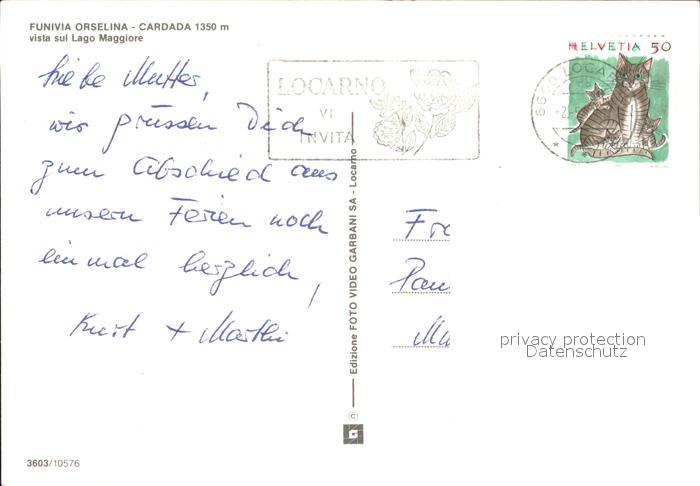 FUNIVIA ORSELINA - CARDADA 1350 m
vista sul Lago Maggiore
HELVETIA 50
LOCARNO
VI
INVITA
6600 LOCAR
Liebe Mutter,
wir grüssen Dich
zum Abschied aus
unsern Ferien noch
einmal herzlich,
Kurt + Marthi
Edizione FOTO VIDEO GARBANI SA - Locarno
©
Fr
Pau
Mu
privacy protection
Datenschutz
3603/10576